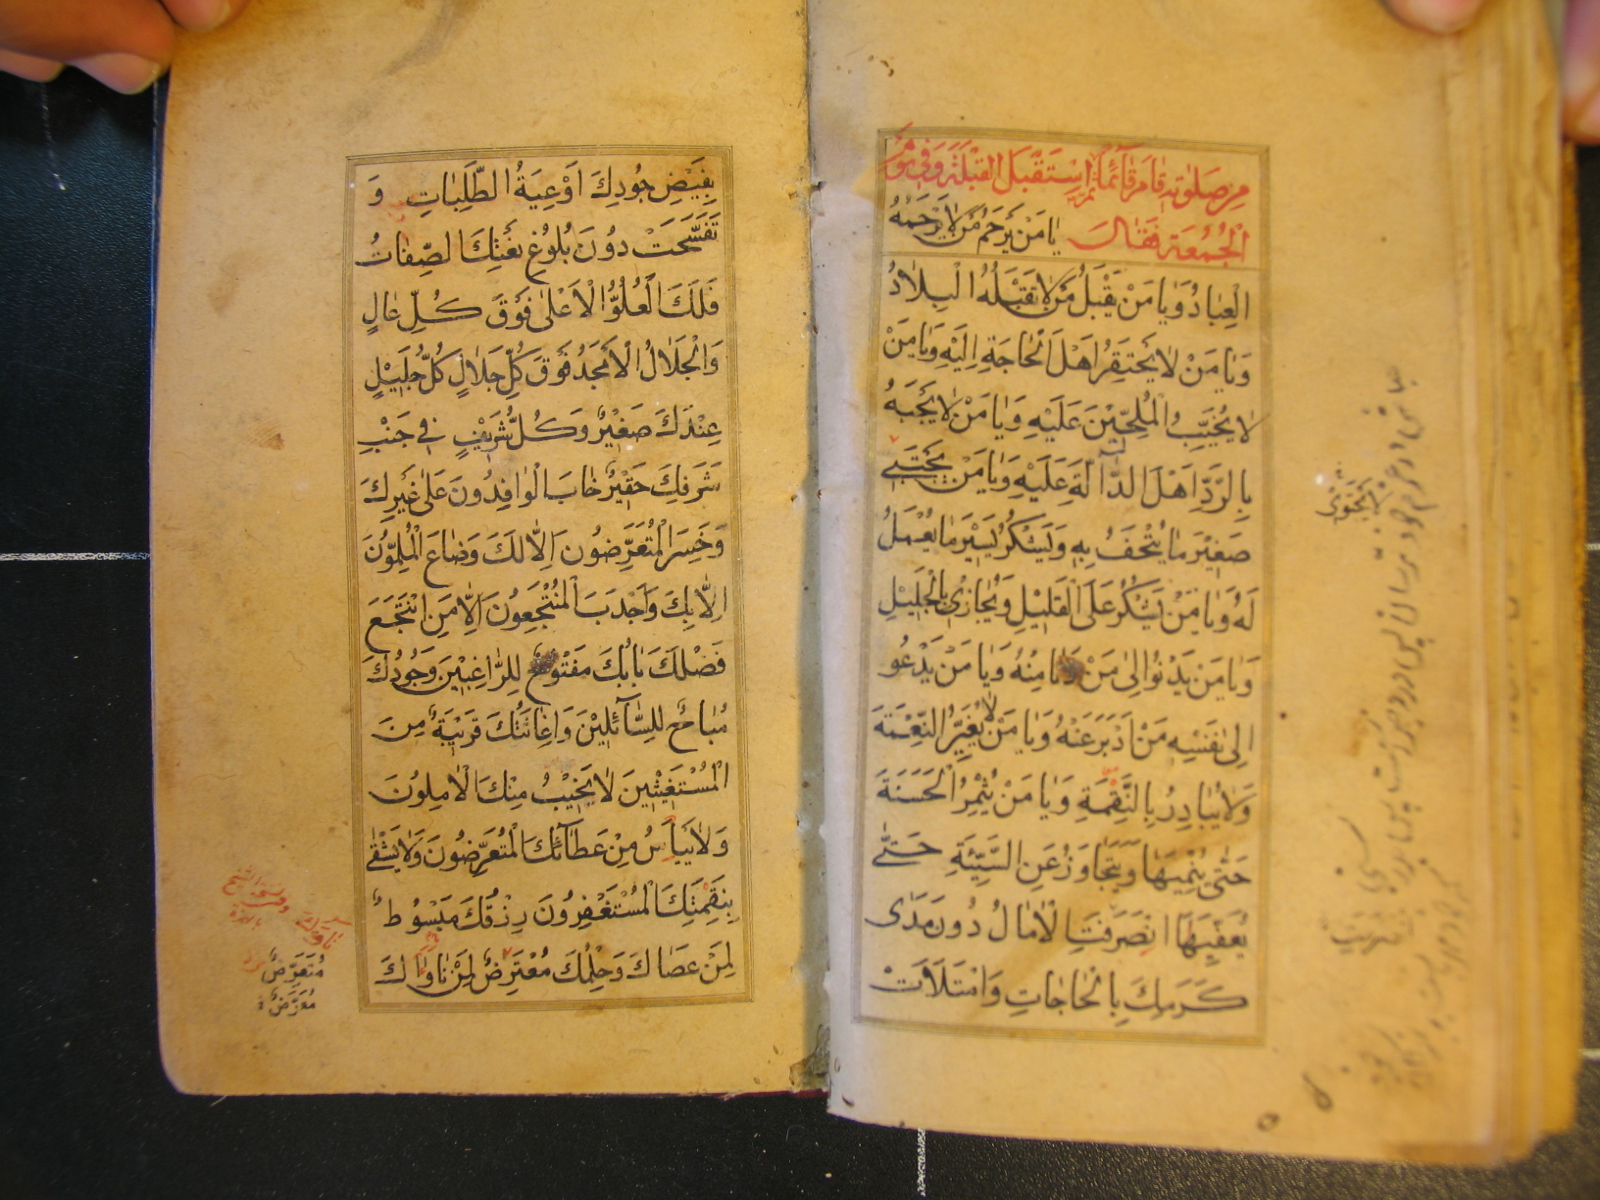 مِن صَلٰوتِهِ قَامَ قَآئِمًا ثُمَّ اسْتَقْبَلَ الْقِبْلَةَ وَفِي يَوْمِ
الْجُمُعَةِ فَقَالَ يَا مَنْ يَرْحَمُ مَنْ لَا يَرْحَمُهُ
الْعِبَادُ وَيَا مَنْ يَقْبَلُ مَنْ لَا تَقْبَلُهُ الْبِلَادُ
وَيَا مَنْ لَا يَحْتَقِرُ اَهْلَ الْحَاجَةِ اِلَيْهِ وَيَا مَنْ
لَا يُخَيِّبُ الْمُلِحِّيْنَ عَلَيْهِ وَيَا مَنْ لَا يَجْبَهُ
بِالرَّدِّ اَهْلَ الدَّآلَّةِ عَلَيْهِ وَيَا مَنْ يَجْتَبِي
صَغِيْرَ مَا يُتْحَفُ بِهِ وَيَشْكُرُ يَسِيْرَ مَا يُعْمَلُ
لَهُ وَيَا مَنْ يَشْكُرُ عَلَى الْقَلِيْلِ وَيُجَازِيْ بِالْجَلِيْلِ
وَيَا مَنْ يَدْنُوْا اِلٰى مَنْ دَنَا مِنْهُ وَيَا مَنْ يَدْعُو
اِلٰى نَفْسِهِ مَنْ اَدْبَرَ عَنْهُ وَيَا مَنْ لَا يُغَيِّرُ النِّعْمَةَ
وَلَا يُبَادِرُ بِالنَّقِمَةِ وَيَا مَنْ يُثْمِرُ الْحَسَنَةَ
حَتّٰى يُنْمِيَهَا وَيَتَجَاوَزُ عَنِ السَّيِّئَةِ حَتّٰى
يُعَفِّيَهَا انْصَرَفَتِ الْاٰمَالُ دُونَ مَدٰى
كَرَمِكَ بِالْحَاجَاتِ وَامْتَلَأَتْ
يَجْتَوِيْ
بِفَيْضِ جُودِكَ اَوْعِيَةُ الطَّلِبَاتِ وَ
تَفَسَّخَتْ دُوْنَ بُلُوْغِ نَعْتِكَ الصِّفَاتُ
فَلَكَ الْعُلُوُّ الْاَعْلٰى فَوْقَ كُلِّ عَالٍ
وَالْجَلَالُ الْاَمْجَدُ فَوْقَ كُلِّ جَلَالٍ كُلُّ جَلِيْلٍ
عِنْدَكَ صَغِيْرٌ وَكُلُّ شَرِيْفٍ فِي جَنْبِ
شَرَفِكَ حَقِيْرٌ خَابَ الْوَافِدُونَ عَلٰى غَيْرِكَ
وَخَسِرَ الْمُتَعَرِّضُونَ اِلَّا لَكَ وَضَاعَ الْمُلِمُّوْنَ
اِلَّا بِكَ وَاَجْدَبَ الْمُنْتَجِعُونَ اِلَّا مَنِ انْتَجَعَ
فَضْلَكَ بَابُكَ مَفْتُوحٌ لِلرَّاغِبِيْنَ وَجُودُكَ
مُبَاحٌ لِلسَّآئِلِيْنَ وَاِغَاثَتُكَ قَرِيْبَةٌ مِنَ
الْمُسْتَغِيْثِيْنَ لَا يَخِيْبُ مِنْكَ الْاٰمِلُونَ
وَلَا يَيْاَسُ مِنْ عَطَآئِكَ الْمُتَعَرِّضُونَ وَلَا يَشْقٰى
بِنَقِمَتِكَ الْمُسْتَغْفِرُونَ رِزْقُكَ مَبْسُوطٌ
لِمَنْ عَصَاكَ وَحِلْمُكَ مُعْتَرِضٌ لِمَنْ نَاوَاكَ
مُتَعَرِّضٌ
مُعَرَّضٌ